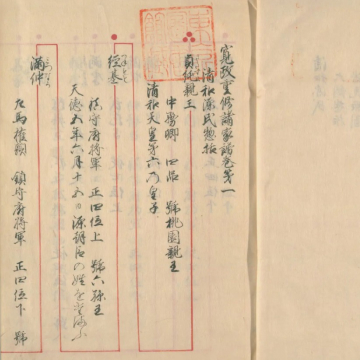 寛政重修諸家譜巻第一
清和源氏惣括
貞純親王
中務卿 四品 號桃園親王
清和天皇第六乃皇子
經基
鎮守府將軍 正四位上 號六孫王
天徳五年六月十五日源朝臣の姓を
滿仲
左馬權頭 鎮守府將軍 正四位下 號